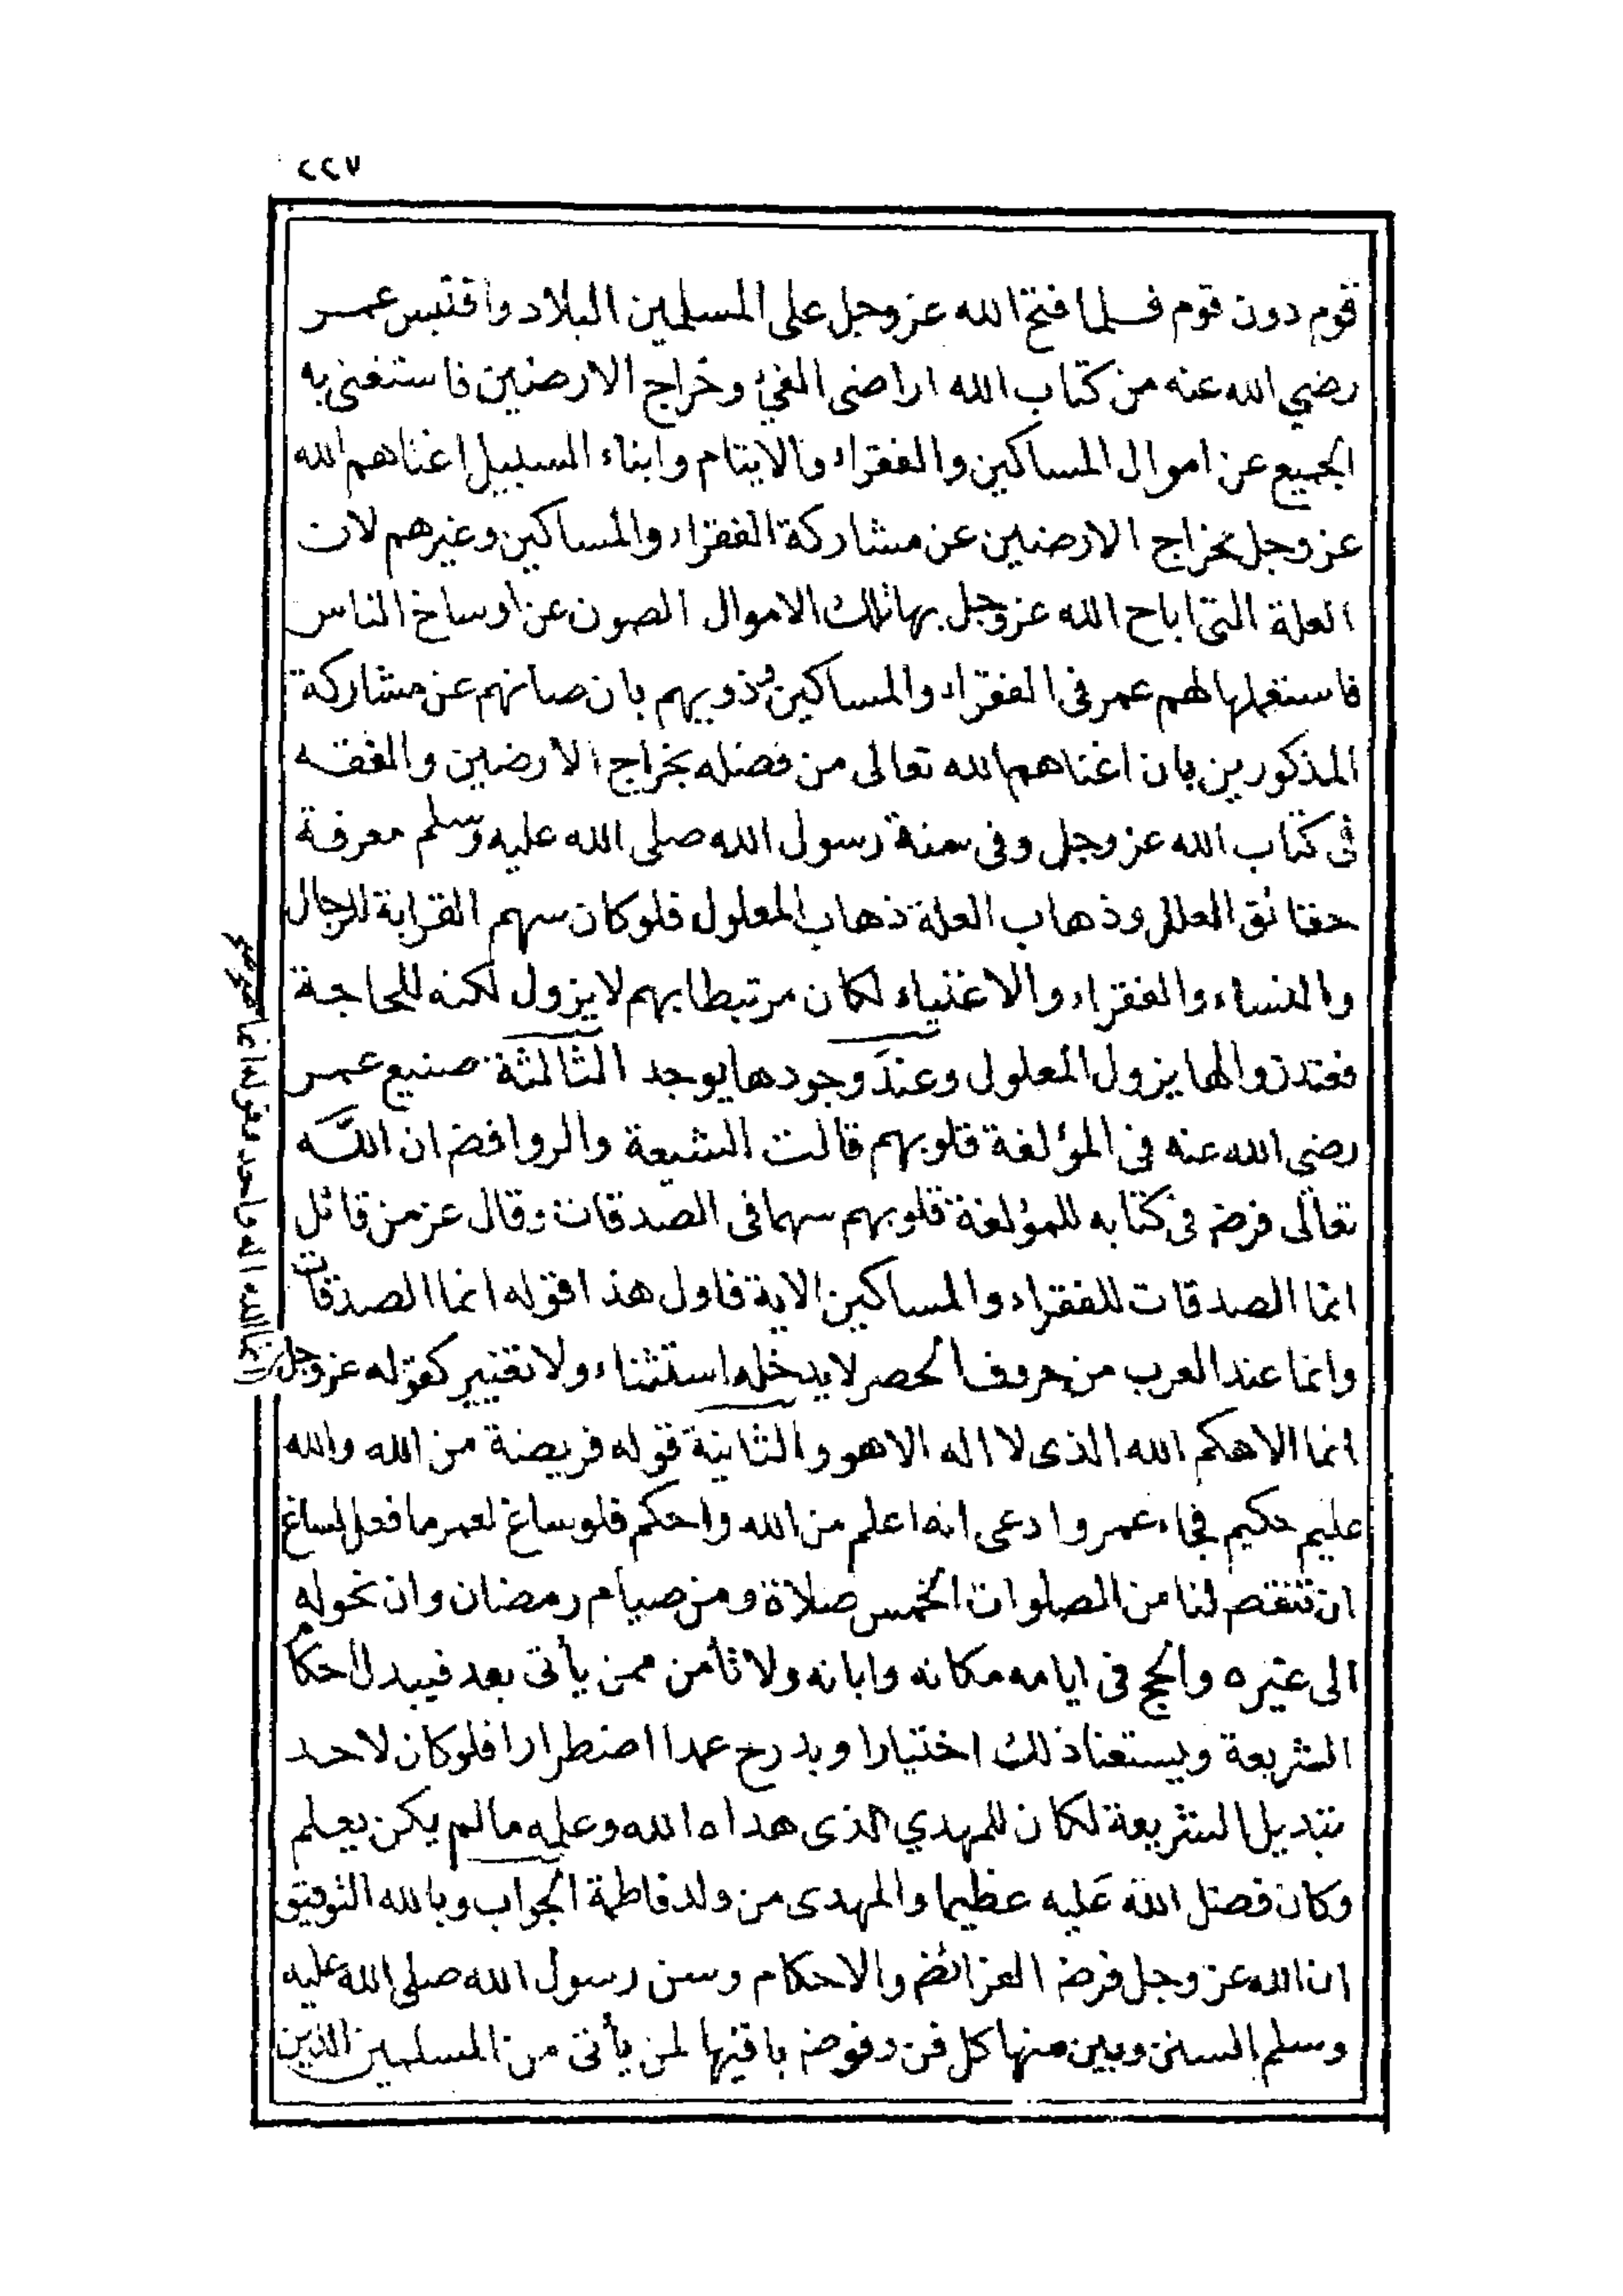 ٢٢٧
قوم دون قوم فلما فتح الله عز وجل على المسلمين البلاد واقتبس عمر
رضي الله عنه من كتاب الله اراضى الفئ وخراج الارضين فاستغنى به
الجميع عن اموال المساكين والفقراء والايتام وابناء السبيل اغناهم الله
عز وجل بخراج الارضين عن مشاركة الفقراء والمساكين وغيرهم لان
العلة التى اباح الله عز وجل بها تلك الاموال الصون عن اوساخ الناس
فاستعملها لهم عمر فى الفقراء والمساكين وذويهم بان صانهم عن مشاركة
المذكورين بان اغناهم الله تعالى من فضله بخراج الارضين والفقه
فى كتاب الله عز وجل وفى سنة رسول الله صلى الله عليه وسلم معرفة
حقائق العلل وذهاب العلة ذهاب المعلول فلو كان سهم القرابة للرجال
والنساء والفقراء والاغنياء لكان مرتبطا بهم لا يزول لكنه للحاجة
فعند زوالها يزول المعلول وعند وجودها يوجد الثالثة صنيع عمر
رضي الله عنه فى المؤلفة قلوبهم قالت الشيعة والروافض ان الله
تعالى فرض فى كتابه للمؤلفة قلوبهم سهما فى الصدقات وقال عز من قائل
انما الصدقات للفقراء والمساكين الاية فاول هذا قوله انما الصدقات
وانما عند العرب من حروف الحصر لا يدخله استثناء ولا تغيير كقوله عز وجل
انما الله اله واحد وقوله انما
انما الاهكم الله الذى لا اله الا هو والثانية قوله فريضة من الله والله
عليم حكيم فجاء عمر وادعى انه اعلم من الله واحكم فلو ساغ لعمر ما فعل لساغ
ان تنقص لنا من الصلوات الخمس صلاة ومن صيام رمضان وان نحوله
الى غيره والحج فى ايامه مكانه وابانه ولا نأمن ممن يأتى بعد فيبدل احكام
الشريعة ويستعنا ذلك اختيارا وبدرح عمدا اضطرارا فلو كان لاحد
تبديل الشريعة لكان للمهدي الذى هداه الله وعلمه مالم يكن يعلم
وكان فضل الله عليه عظيما والمهدى من ولد فاطمة الجواب وبالله التوفيق
ان الله عز وجل فرض الفرائض والاحكام وسن رسول الله صلى الله عليه
وسلم السنن وبين منها كل فن وفوض باقيها لمن يأتى من المسلمين الذين